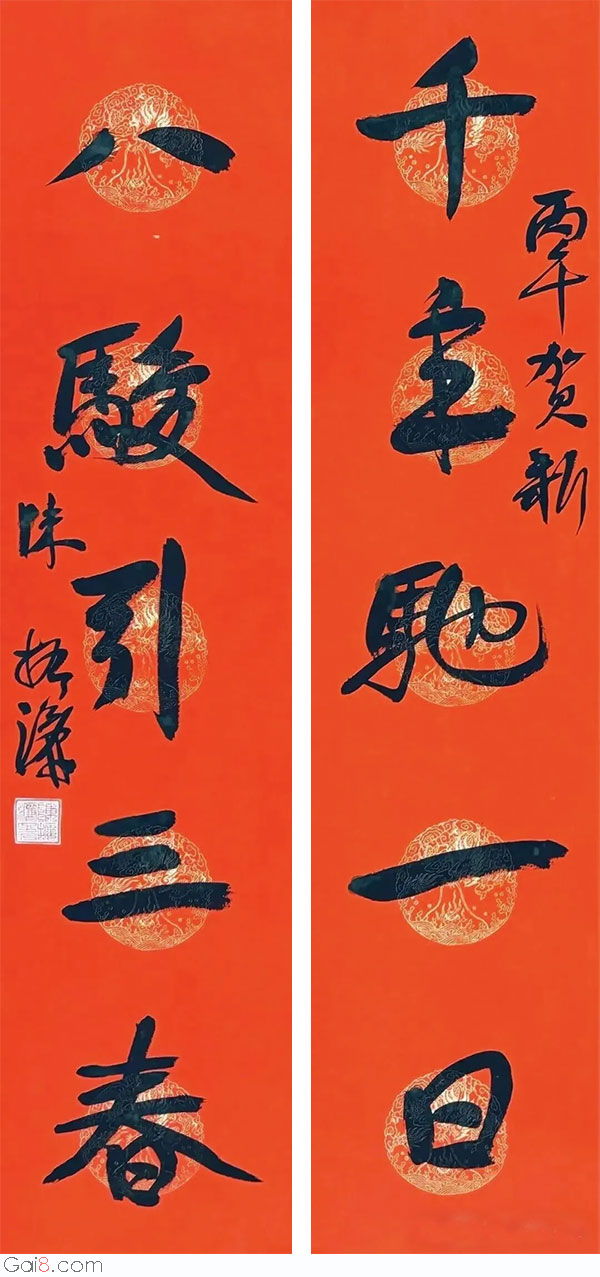 丙午贺新
千車馳一日
八駿引三春
陈振濂
Gai8.com